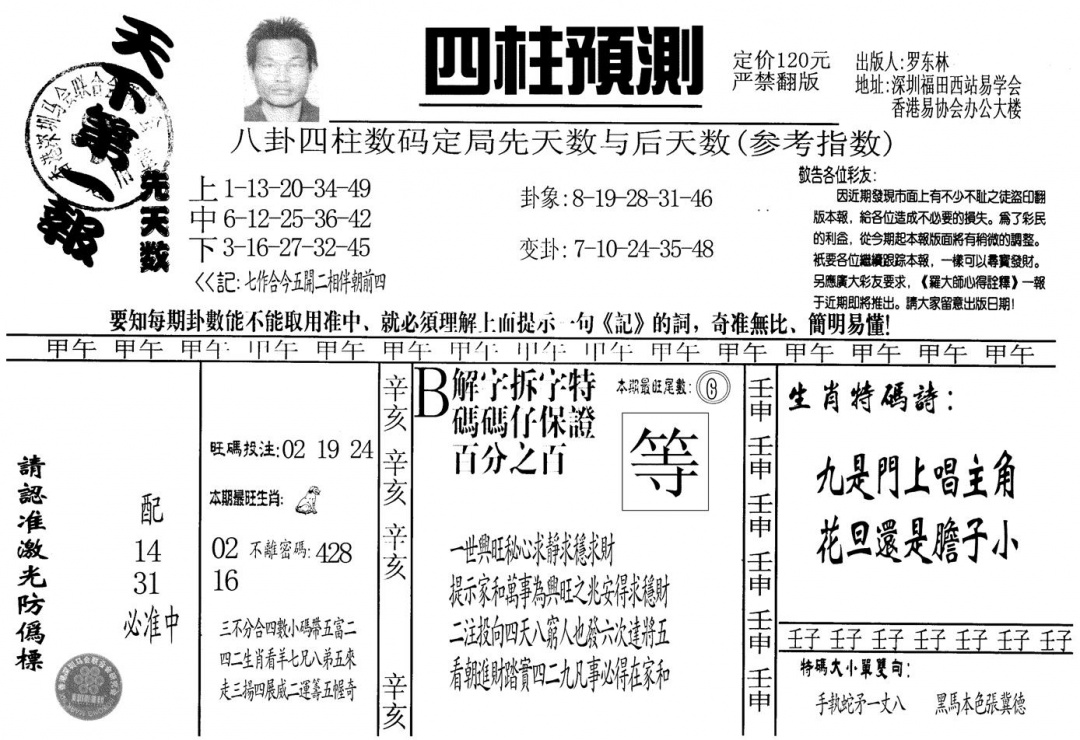 天下第一報
四柱預測
定价120元
严禁翻版
出版人:罗东林
地址:深圳福田西站易学会
香港易协会办公大楼
八卦四柱数码定局先天数与后天数(参考指数)
先天数
上 1-13-20-34-49
中 6-12-25-36-42
下 3-16-27-32-45
<<記:七作合今五開二相伴朝前四
卦象:8-19-28-31-46
变卦:7-10-24-35-48
敬告各位彩友:
因近期發現市面上有不少不耻之徒盜印翻
版本報,給各位造成不必要的損失。爲了彩民
的利益,從今期起本報版面將有稍微的調整。
衹要各位繼續跟踪本報,一樣可以尋寶發財。
另應廣大彩友要求,《羅大師心得詮釋》一報
于近期即將推出。請大家留意出版日期!
要知每期卦數能不能取用准中、就必須理解上面提示一句《記》的詞,奇准無比、簡明易懂!
甲午 甲午 甲午 甲午 甲午 甲午 甲午 甲午 甲午 甲午 甲午 甲午 甲午 甲午 甲午
請認准激光防僞標
配
14
31
必准中
旺碼投注:02 19 24
本期最旺生肖:
02 不離密碼:428
16
三不分合四數小碼帶五富二
四二生肖看羊七兄八弟五來
走三揚四展威二運籌五幄奇
辛亥
辛亥
辛亥
辛亥
B 解字拆字特
碼碼仔保證
百分之百
本期最旺尾數:6
等
一世興旺秘心求靜求穩求財
提示家和萬事為興旺之兆安得求穩財
二注投向四天八窮人也發六次達將五
看朝進財踏實四二九凡事必得在家和
壬申
壬申
壬申
壬申
壬申
壬申
生肖特碼詩:
九是門上唱主角
花旦還是膽子小
壬子 壬子 壬子 壬子 壬子 壬子 壬子
特碼大小單雙句:
手執蛇矛一丈八 黑馬本色張冀德